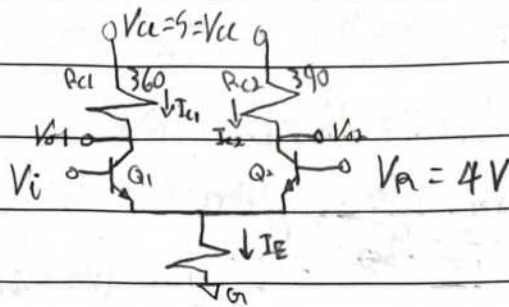 Vcc=5=Vcc
Rc1 360 Rc2 390
Ic1 Ic2
Vo1 Vo2
Vi Q1 Q2 VR = 4V
IE
G